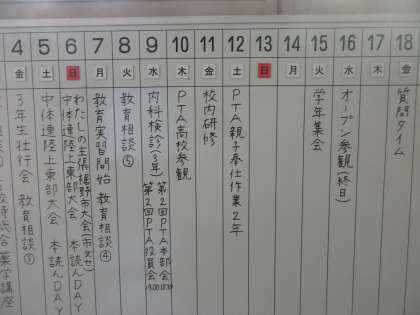 4 5 6 7 8 9 10 11 12 13 14 15 16 17 18
金 土 日 月 火 水 木 金 土 日 月 火 水 木 金
3年生壮行会 教育相談③
中体連陸上東部大会 本読んDAY
わたしの主張裾野市大会(市文セ)
中体連陸上東部大会 本読んDAY
教育実習開始 教育相談④
教育相談⑤
内科検診(3年) 第2回PTA本部会
第2回PTA役員会
PTA高校参観
校内研修
PTA親子奉仕作業2年
学年集会
オープン参観(終日)
質問タイム